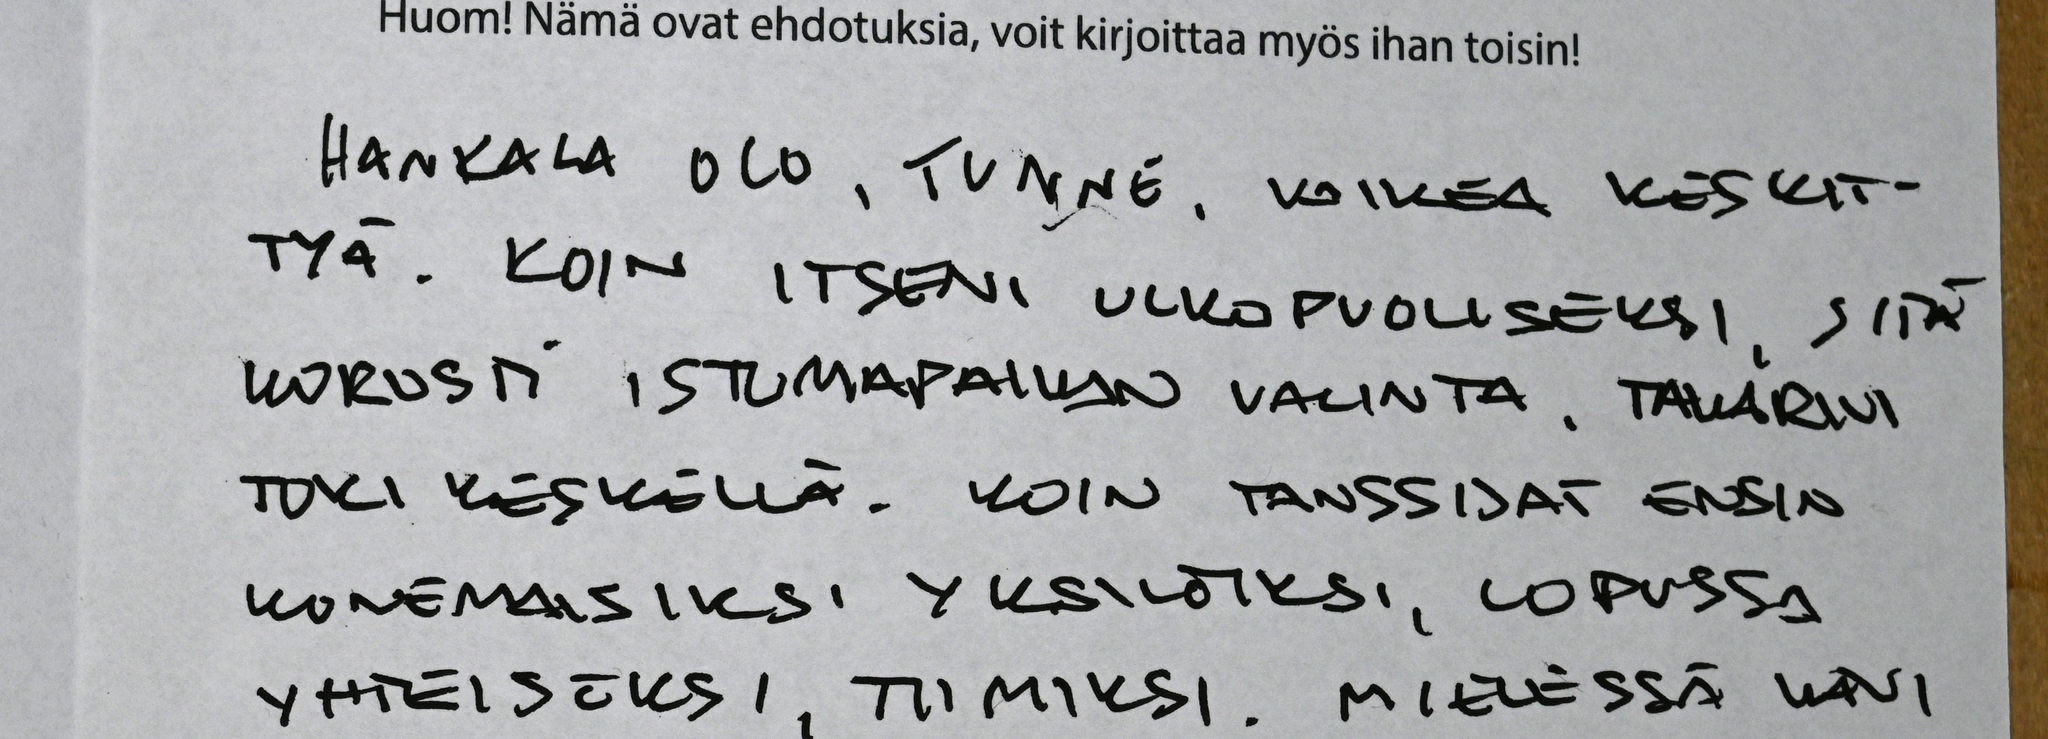 Huom! Nämä ovat ehdotuksia, voit kirjoittaa myös ihan toisin!
HANKALA OLO, TUNNE, VAIKEA KESKIT-
TYÄ. KOIN ITSENI ULKOPUOLISEKSI, SITÄ
KOROSTI ISTUMAPAIKAN VALINTA, TAKARIVI
TOKI KESKELLÄ. KOIN TANSSIJAT ENSIN
KONEMAISIKSI YKSILÖIKSI, LOPUSSA
YHTEISÖKSI, TIIMIKSI. MIELESSÄ KÄVI